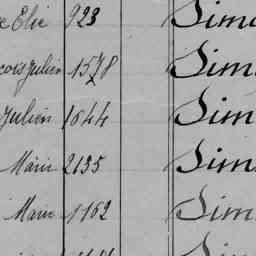 Elie 923 Sim
Julien 1578 Sim
Julien 1644 Sim
Marie 2135 Sim
Marie 1162 Sim
Sim